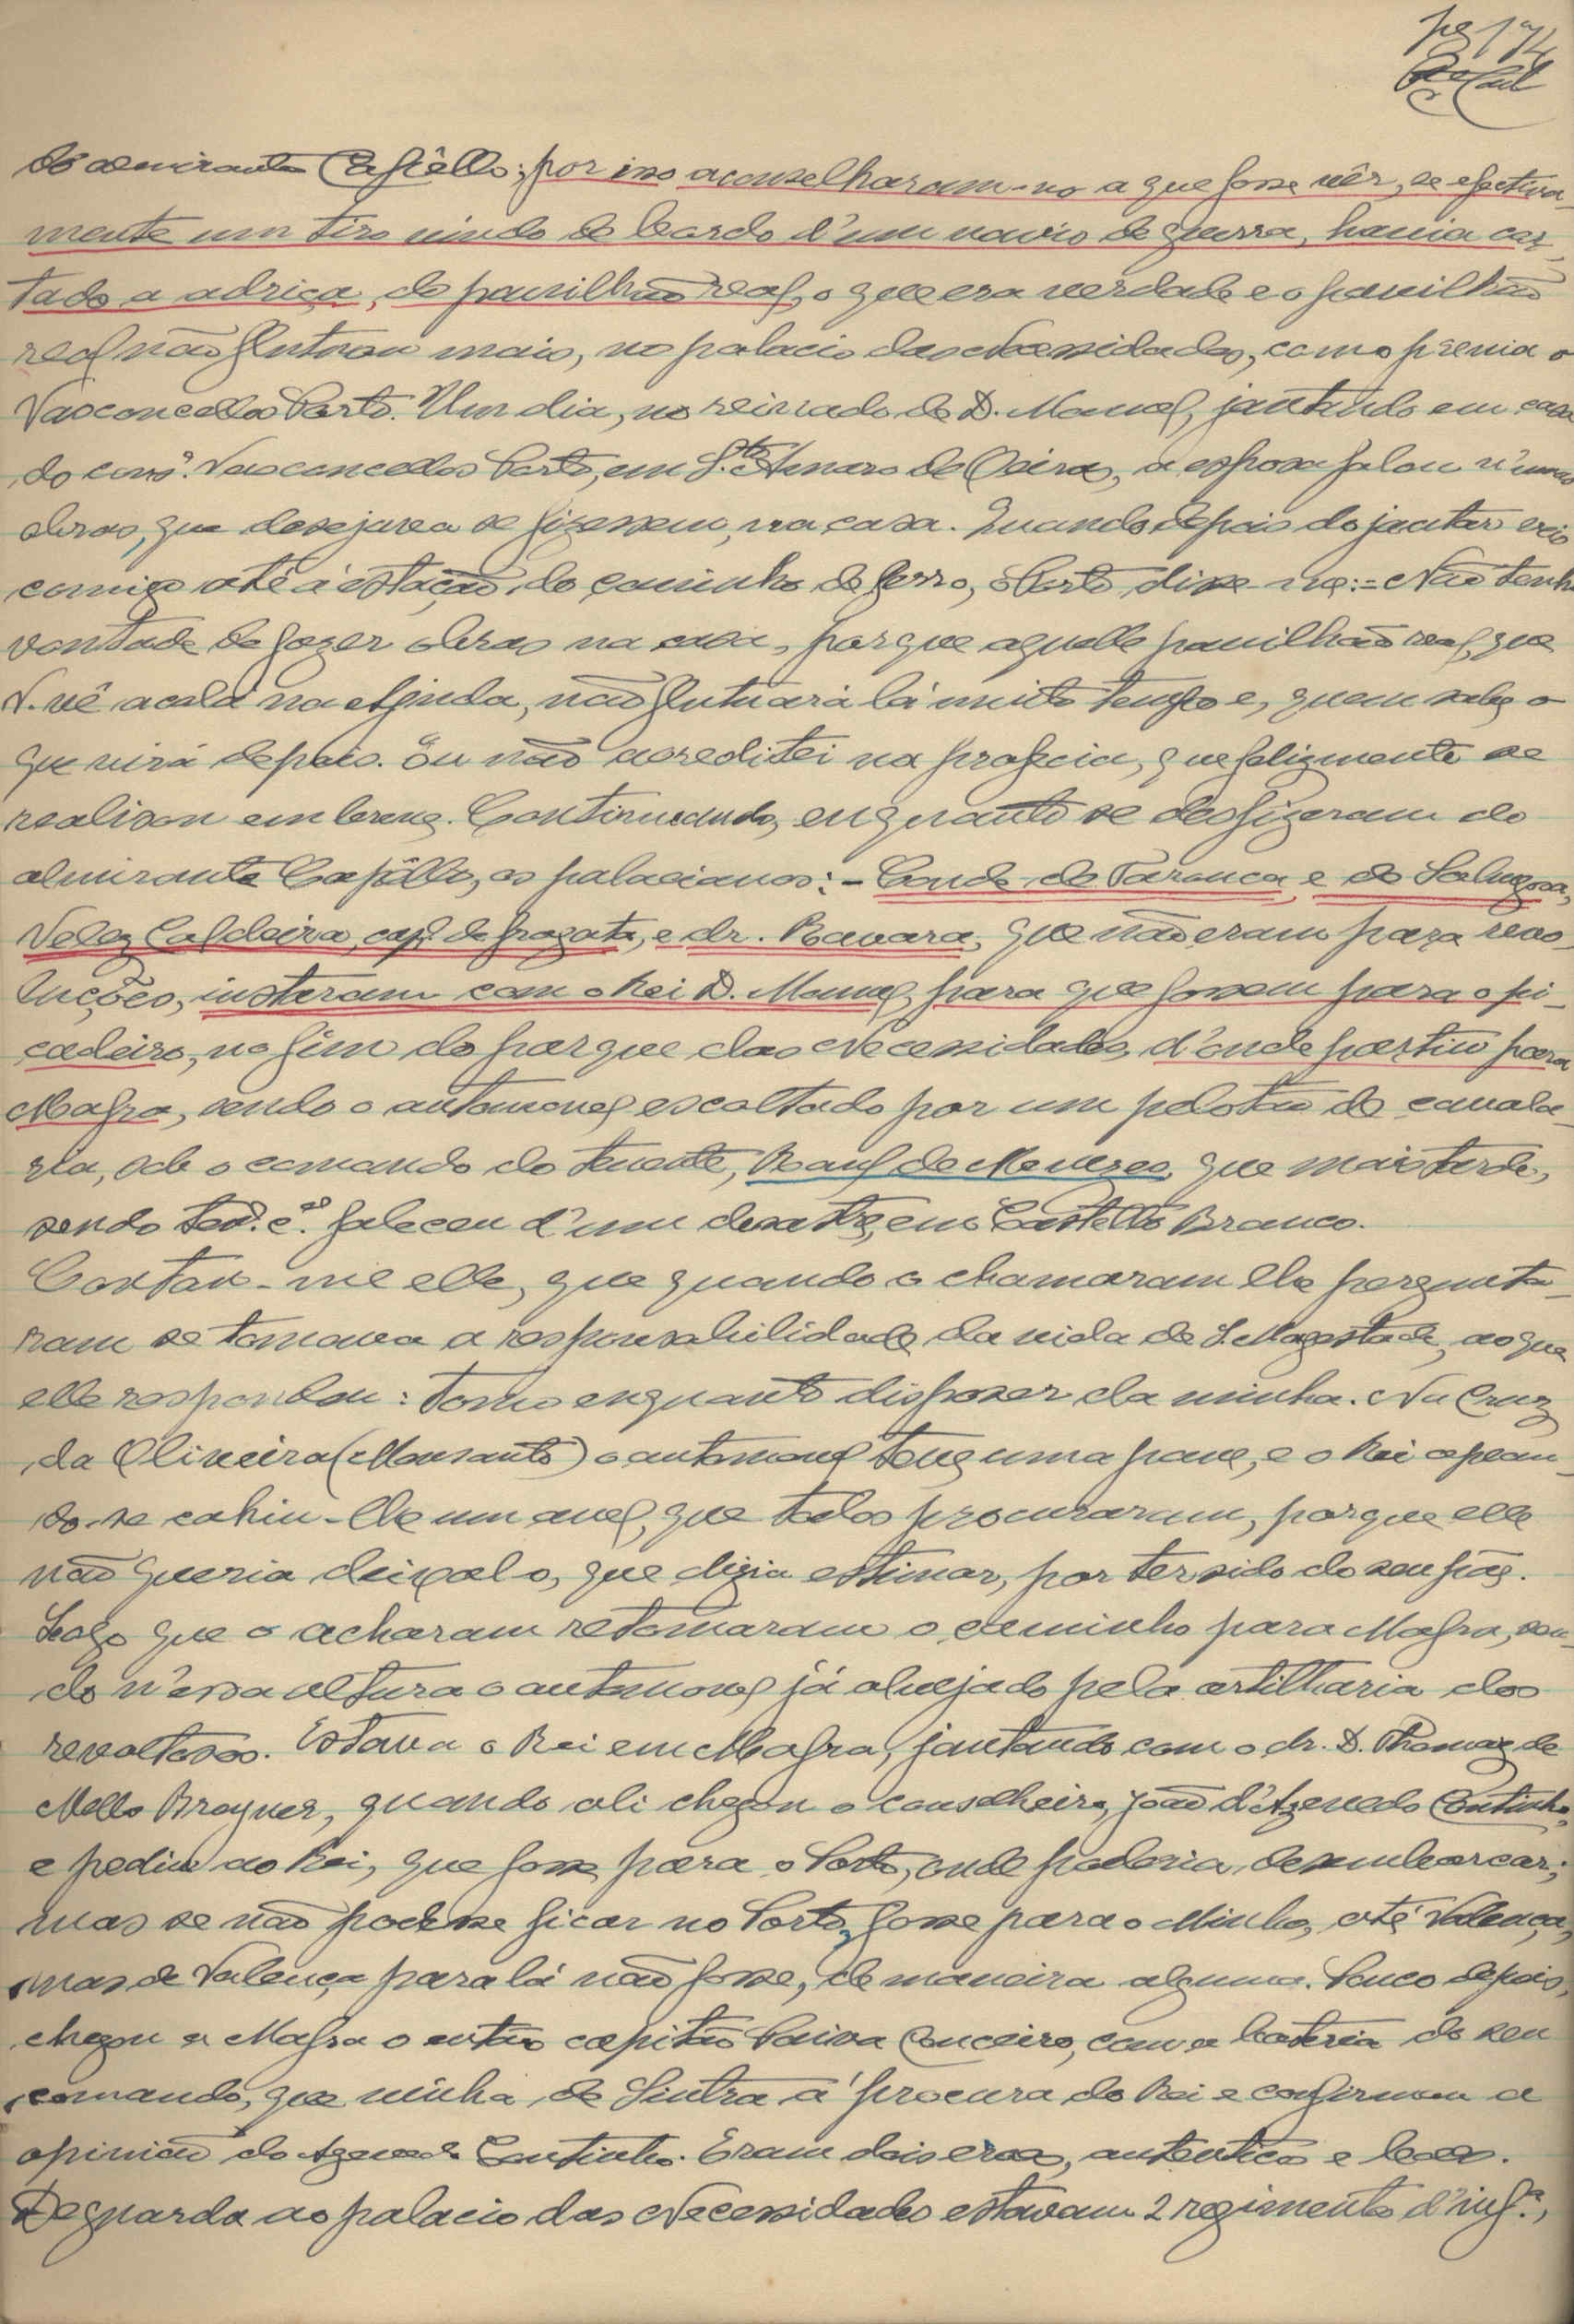 pg 174
do almirante Capêllo; por isso aconselharam-no a que fosse vêr, se efectiva-
mente um tiro vindo de bordo d'um navio de guerra, havia cor-
tado a adriça, do pavilhão real, o que era verdade e o pavilhão
real não flutuou mais, no palacio das Necessidades, como previa o
Vasconcellos Porto. Um dia, no reinado de D. Manuel, jantando em casa
do cons.º Vasconcellos Porto, em S.to Amaro de Oeiras, a esposa falou n'umas
obras, que desejava se fizessem, na casa. Quando depois do jantar veio
comigo até á estação do caminho de ferro, o Porto disse-me:= Não tenho
vontade de fazer obras na casa, porque aquelle pavilhão real, que
V. vê acolá na Ajuda, não flutuará lá muito tempo e, quem sabe o
que virá depois. Eu não acreditei na profecia, que felizmente se
realisou em breve. Continuando, enquanto se desfizeram do
almirante Capêllo, os palacianos: - Conde de Tarouca, e de Sabugosa,
Velez Caldeira, cap. de fragata, e dr. Ravara, que não eram para revo-
luções, instaram com o Rei D. Manuel, para que fossem para o pi-
cadeiro, no fim do parque das Necessidades, d'onde partiu para
Mafra, sendo o automovel escoltado por um pelotão de cavala-
ria, sob o comando do tenente, Raul de Menezes, que mais tarde,
sendo ten. c.el faleceu d'um desastre, em Castello Branco.
Contou-me elle, que quando o chamaram lhe pergunta-
ram se tomava a responsabilidade da vida de S. Magestade, ao que
elle respondeu: Tomo enquanto disposer da minha. Na Cruz
da Oliveira (Monsanto) o automovel teve uma pane, e o Rei apean-
do-se cahiu-lhe um anel, que todos procuraram, porque elle
não queria deixal-o, que dizia estimar, por ter sido do seu pae.
Logo que o acharam retomaram o caminho para Mafra, sen-
do n'essa altura o automovel já alvejado pela artilharia dos
revoltosos. Estava o Rei em Mafra, jantando com o dr. D. Thomaz de
Mello Breyner, quando ali chegou o conselheiro, João d'Azevedo Coutinho,
e pediu ao Rei, que fosse para o Porto, onde poderia desembarcar;
mas se não podesse ficar no Porto, fosse para o Minho, até Valença,
mas de Valença para lá não fosse, de maneira alguma. Pouco depois,
chegou a Mafra o então capitão Paiva Couceiro, com a bateria do seu
comando, que vinha de Sintra á procura do Rei e confirmou a
opinião do Azevedo Coutinho. Eram dois eroes, autenticos e leaes.
De guarda ao palacio das Necessidades estavam 2 regimentos d'inf.ª,